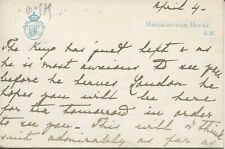 April 4.
MARLBOROUGH HOUSE,
S.W.
The King has just left & as
he is most anxious to see you
before he leaves London he
hopes you will be here
for tea tomorrow in order
to see you. This will I think
suit admirably as far as